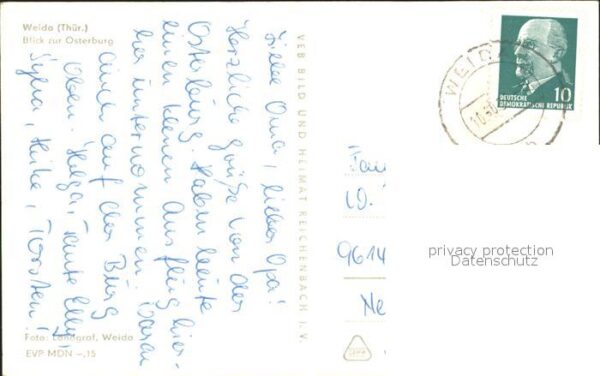 Weida (Thür.)
Blick zur Osterburg
Liebe Oma, lieber Opa!
Herzliche Grüße von der
Osterburg. Haben heute
einen kleinen Ausflug hier-
her unternommen. Waren
auch auf der Burg
oben. Helga, Tante Elly,
Sylvia, Heike, Torsten!
Foto: Landgraf, Weida
EVP MDN –,15
VEB BILD UND HEIMAT REICHENBACH I. V.
WEID
10
DEUTSCHE
DEMOKRATISCHE REPUBLIK
10
Fa
W.
9614
Ne
privacy protection
Datenschutz